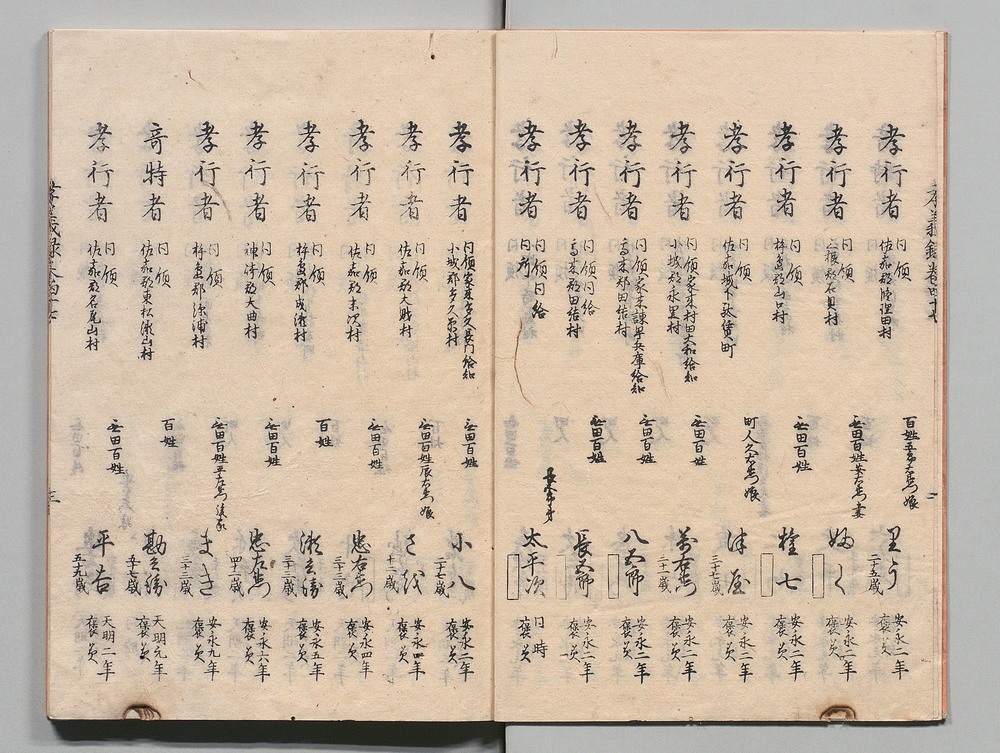 孝義録巻四十七
孝行者
同領
佐嘉郡
村
百姓
娘
里う
二十五歳
安永二年
褒美
孝行者
同領
村
無田百姓
妻
安永二年
褒美
孝行者
同領
杵島郡山口村
無田百姓
權七
安永二年
褒美
孝行者
同領
佐嘉城下紙漉町
町人久右衛門娘
津屋
三十七歳
安永二年
褒美
孝行者
同領家来村田大和給知
小城郡永里村
無田百姓
萬右衛門
三十一歳
安永二年
褒美
孝行者
同領家来諫早兵庫給知
高来郡田結村
無田百姓
八五郎
安永二年
褒美
孝行者
同領同給
高来郡田結村
無田百姓
長五郎
安永二年
褒美
孝行者
同領同給
同所
長五郎弟
太平次
同時
褒美
孝行者
同領家来多久長門給知
小城郡多久原村
無田百姓
小八
二十七歳
安永二年
褒美
孝行者
同領
佐嘉郡大財村
無田百姓辰右衛門娘
さ代
十二歳
安永四年
褒美
孝行者
同領
佐嘉郡末次村
無田百姓
忠右衛門
三十三歳
安永四年
褒美
孝行者
同領
杵島郡成瀬村
百姓
瀬兵衛
三十一歳
安永五年
褒美
孝行者
同領
神埼郡大曲村
無田百姓
忠右衛門
四十二歳
安永六年
褒美
孝行者
同領
杵島郡深浦村
無田百姓平左衛門後家
まき
三十二歳
安永九年
褒美
奇特者
同領
佐嘉郡東松瀬山村
百姓
勘兵衛
五十七歳
天明元年
褒美
孝行者
同領
佐嘉郡名尾山村
無田百姓
平吉
五十九歳
天明二年
褒美
孝義録巻四十七
三